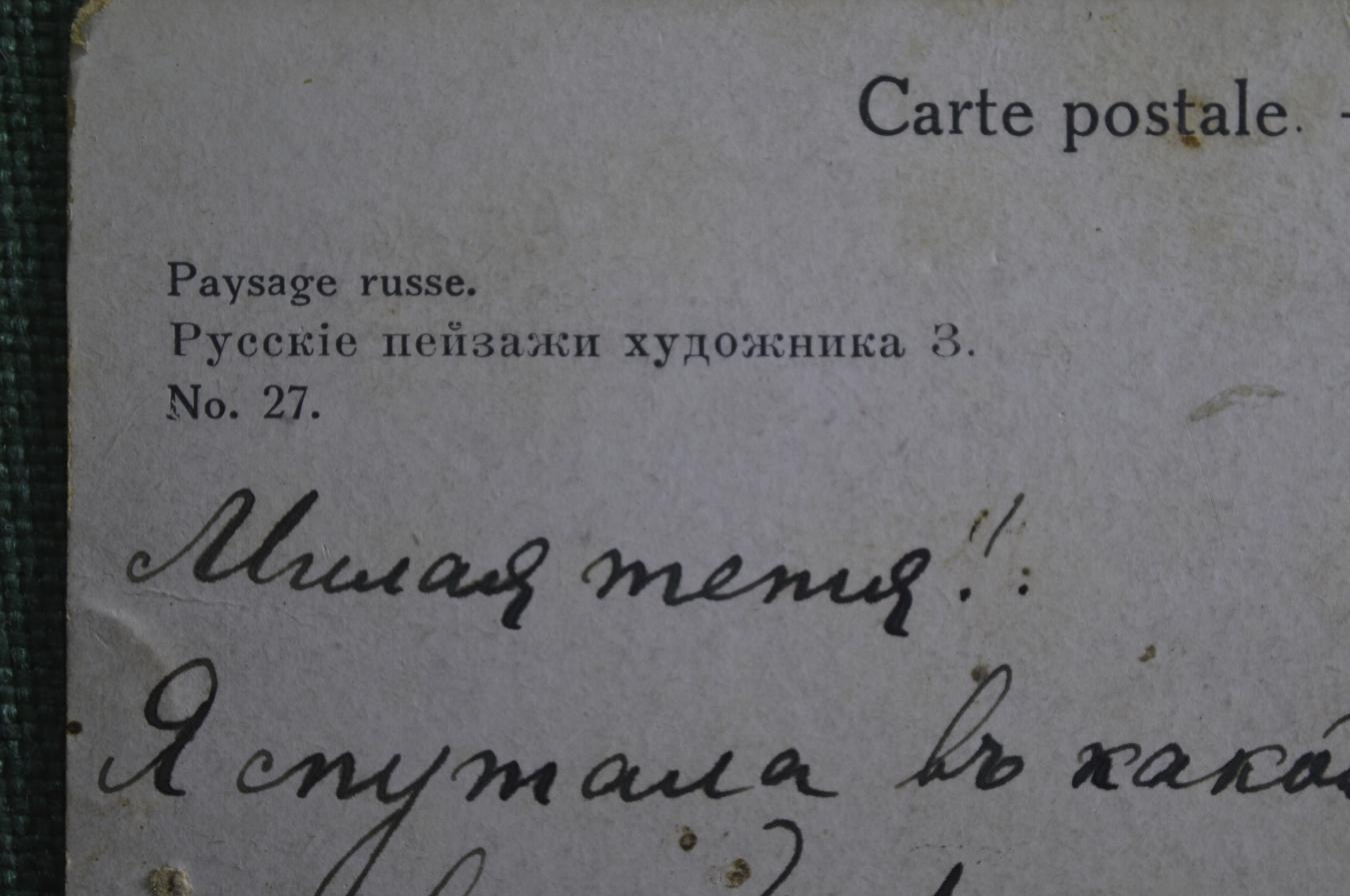 Carte postale. -
Paysage russe.
Русскіе пейзажи художника З.
No. 27.
Милая тетя!!:
Я спутала въ како